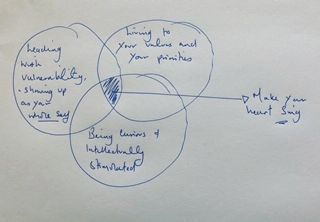 Leading
with
vulnerability,
- showing up
as your
whole self
Living to
your values and
your priorities
Being curious &
Intellectually
stimulated
Make your
heart sing